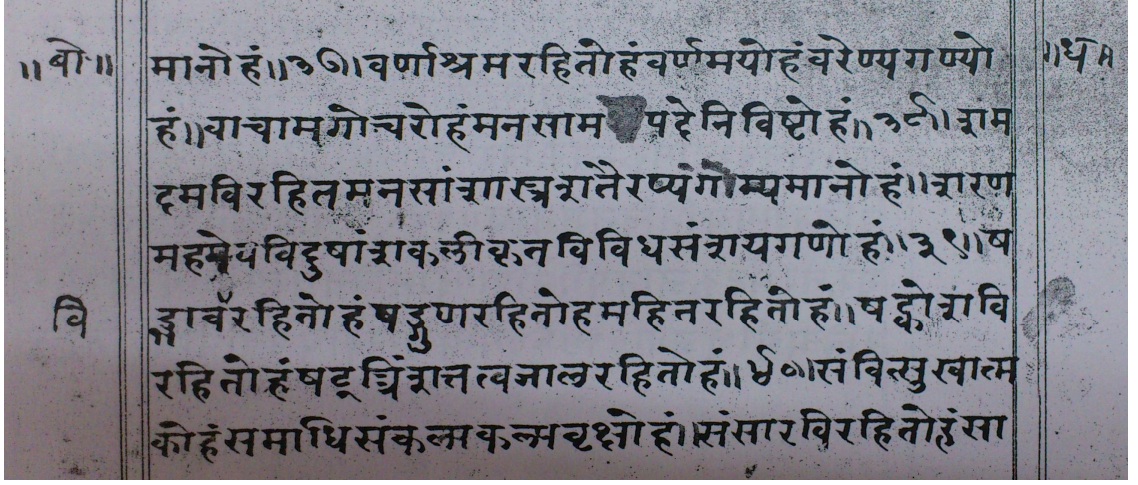 ॥बो॥ मानोहं॥३७॥वर्णाश्रमरहितोहंवर्णमयोहंवरेण्यगण्यो ॥ध॥
हं॥वाचामगोचरोहंमनसाम पदेनिविष्टोहं॥३८॥शम
दमविरहितमनसांशास्त्रशतैरप्यगोम्यमानोहं॥शरण
महमेवविदुषांशकलीकृतविविधसंशयगणोहं॥३९॥ष
वि ड्भावरहितोहंषड्गुणरहितोहमहितरहितोहं॥षट्कोशवि
रहितोहंषट्त्रिंशत्तत्वजालरहितोहं॥४०॥संवित्सुखात्म
कोहंसमाधिसंकल्पकल्पवृक्षोहं॥संसारविरहितोहंसा